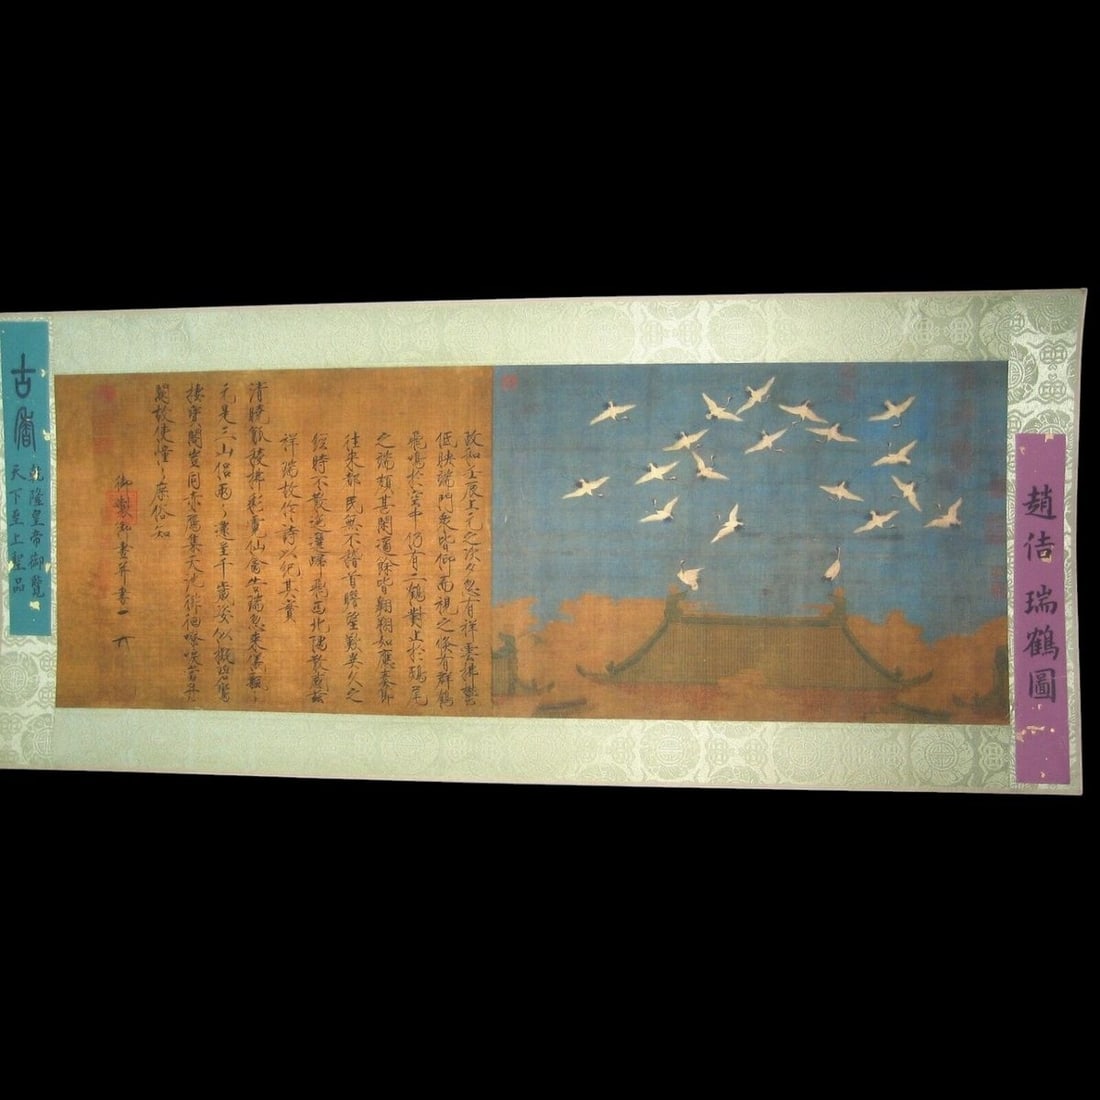 趙佶 瑞鶴圖
政和壬辰上元之次夕忽有祥雲拂鬱
低映端門眾皆仰而視之倏有群鶴
飛鳴於空中仍有二鶴對止於鴟尾
之端頗甚閑適餘皆翱翔如應奏節
往來都民無不稽首瞻望歎異久之
經時不散迤邐歸飛西北隅散感茲
祥瑞故作詩以紀其實
清曉觚稜拂彩霓仙禽告瑞忽來儀飄〻
元是三山侶兩〻還呈千歲姿似擬碧鸞
棲寶閣豈同赤鴈集天池徘徊嘹唳當丹
闕故使憧〻庶俗知
御製御畫并書
古
乾隆皇帝御覽
天下至上聖品